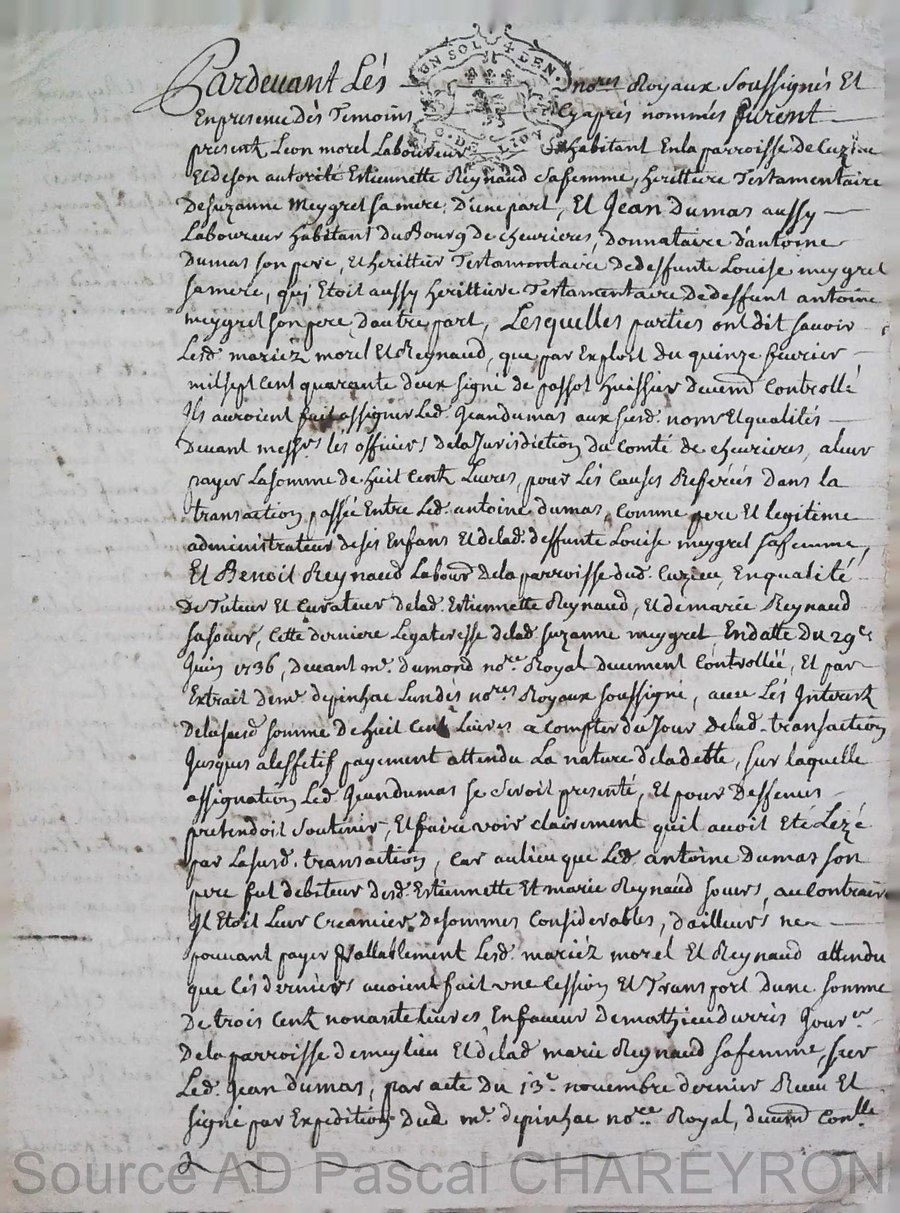 UN SOL 4 DEN.
G. DE LYON
Pardevant Lés nores Royaux Soussignés Et
Enpresence Dès Temoins Cyaprés nommés furent
présent Leon morel Laboureur habitant Enla parroisse de Cuzieu
Et deson autorité Estiennette Reynaud safemme, heritiere Testamentaire
De suzanne Meygret samere, d'une part, Et Jean Dumas aussy
Laboureur habitant Du Bourg de Chevrieres, Donnataire d'antoine
Dumas son pere, Et herittier Testamentaire Dedeffunte Louise meygret
samere, qui Etoit aussy herittiere Testamentaire Dedeffunt antoine
meygret son pere d'autre part, Lesquelles parties ont dit savoir
Lesd. mariéz morel Et Reynaud, que par Exploit du quinze fevrier
mil sept Cent quarante deux signé de passot huissier Deuemt Controllé
Ils auroient fait assigner Led. Jean dumas aux susd. noms Et qualités
Devant messrs lés officiers Dela Jurisdiction Du Comté de Chevrieres, a leur
payer La somme de huit Cent Livres, pour Lés Causes Referéés Dans la
transaction passéé Entre Led. antoine dumas, Comme pere Et legitime
administrateur de ses Enfans Et delad. deffunte Louise meygret safemme,
Et Benoit Reynaud Labour Dela parroisse dud. Cuzieu, En qualité
De Tuteur Et Curateur delad. Estiennette Reynaud, Et de marie Reynaud
sa soeur, Cette derniere Legateresse delad. suzanne meygret En datte Du 29e
Juin 1736, devant me. dumond nore. Royal deuement Controlléé, Et par
Extrait de me. depinhac Lun dés nores Royaux soussigné, avec Lés Interest
Dela susd. somme De huit Cent Livres a Compter du Jour Delad. transaction
Jusques a leffetif payement attendu La nature dela dette, sur laquelle
assignation Led. Jean dumas se seroit presenté, Et pour Deffences
pretendoit soutenir, Et faire voir clairement quil avoit Eté Lezé
par La susd. transaction, Car au lieu que Led. antoine Dumas son
pere fut debiteur desd. Estiennette Et marie Reynaud soeurs, au Contraire
Il Etoit Leur Creancier De sommes Considerables, d'ailleurs ne
pouvant payer vallablement Lesd. mariéz morel Et Reynaud attendu
que Cés derniers avoient fait une Cession Et Transport dune somme
De trois Cent nonante livres En faveur De mathieu
De la parroisse de meylieu Et delad. marie Reynaud safemme, sur
Led. Jean dumas, par acte du 13e. novembre dernier Receu Et
signé par Expedition dud. me. depinhac nore. Royal, deuemt Conlle
Source AD Pascal CHAREYRON